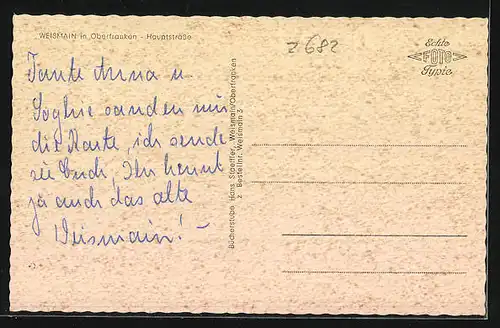 WEISMAIN in Oberfranken - Hauptstraße
z 682
Echte
FOTO
Typie
Tante Anna u
Sophie sanden mir
die Karte, ich sende
sie Euch, Ihr kennt
ja auch das alte
Weismain! -
Bücherstube Hans Stoeffler, Weismain/Oberfranken
z Bestellnr. Weismain 3